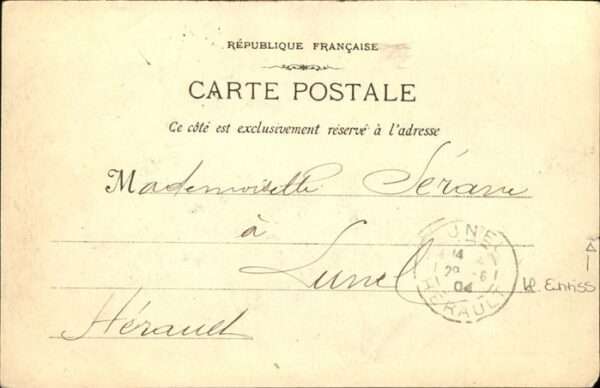 RÉPUBLIQUE FRANÇAISE
CARTE POSTALE
Ce côté est exclusivement réservé à l'adresse
Mademoiselle Sérane
à
Lunel
Hérault
LUNEL
14
29 -6
04
HERAULT